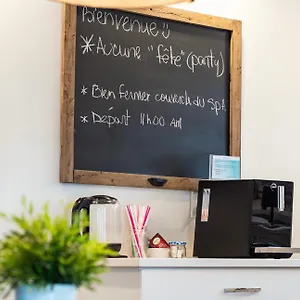 Bienvenue
* Aucune "fête" (party)
* Bien fermer couvercle du spa
* Départ 11h00 AM